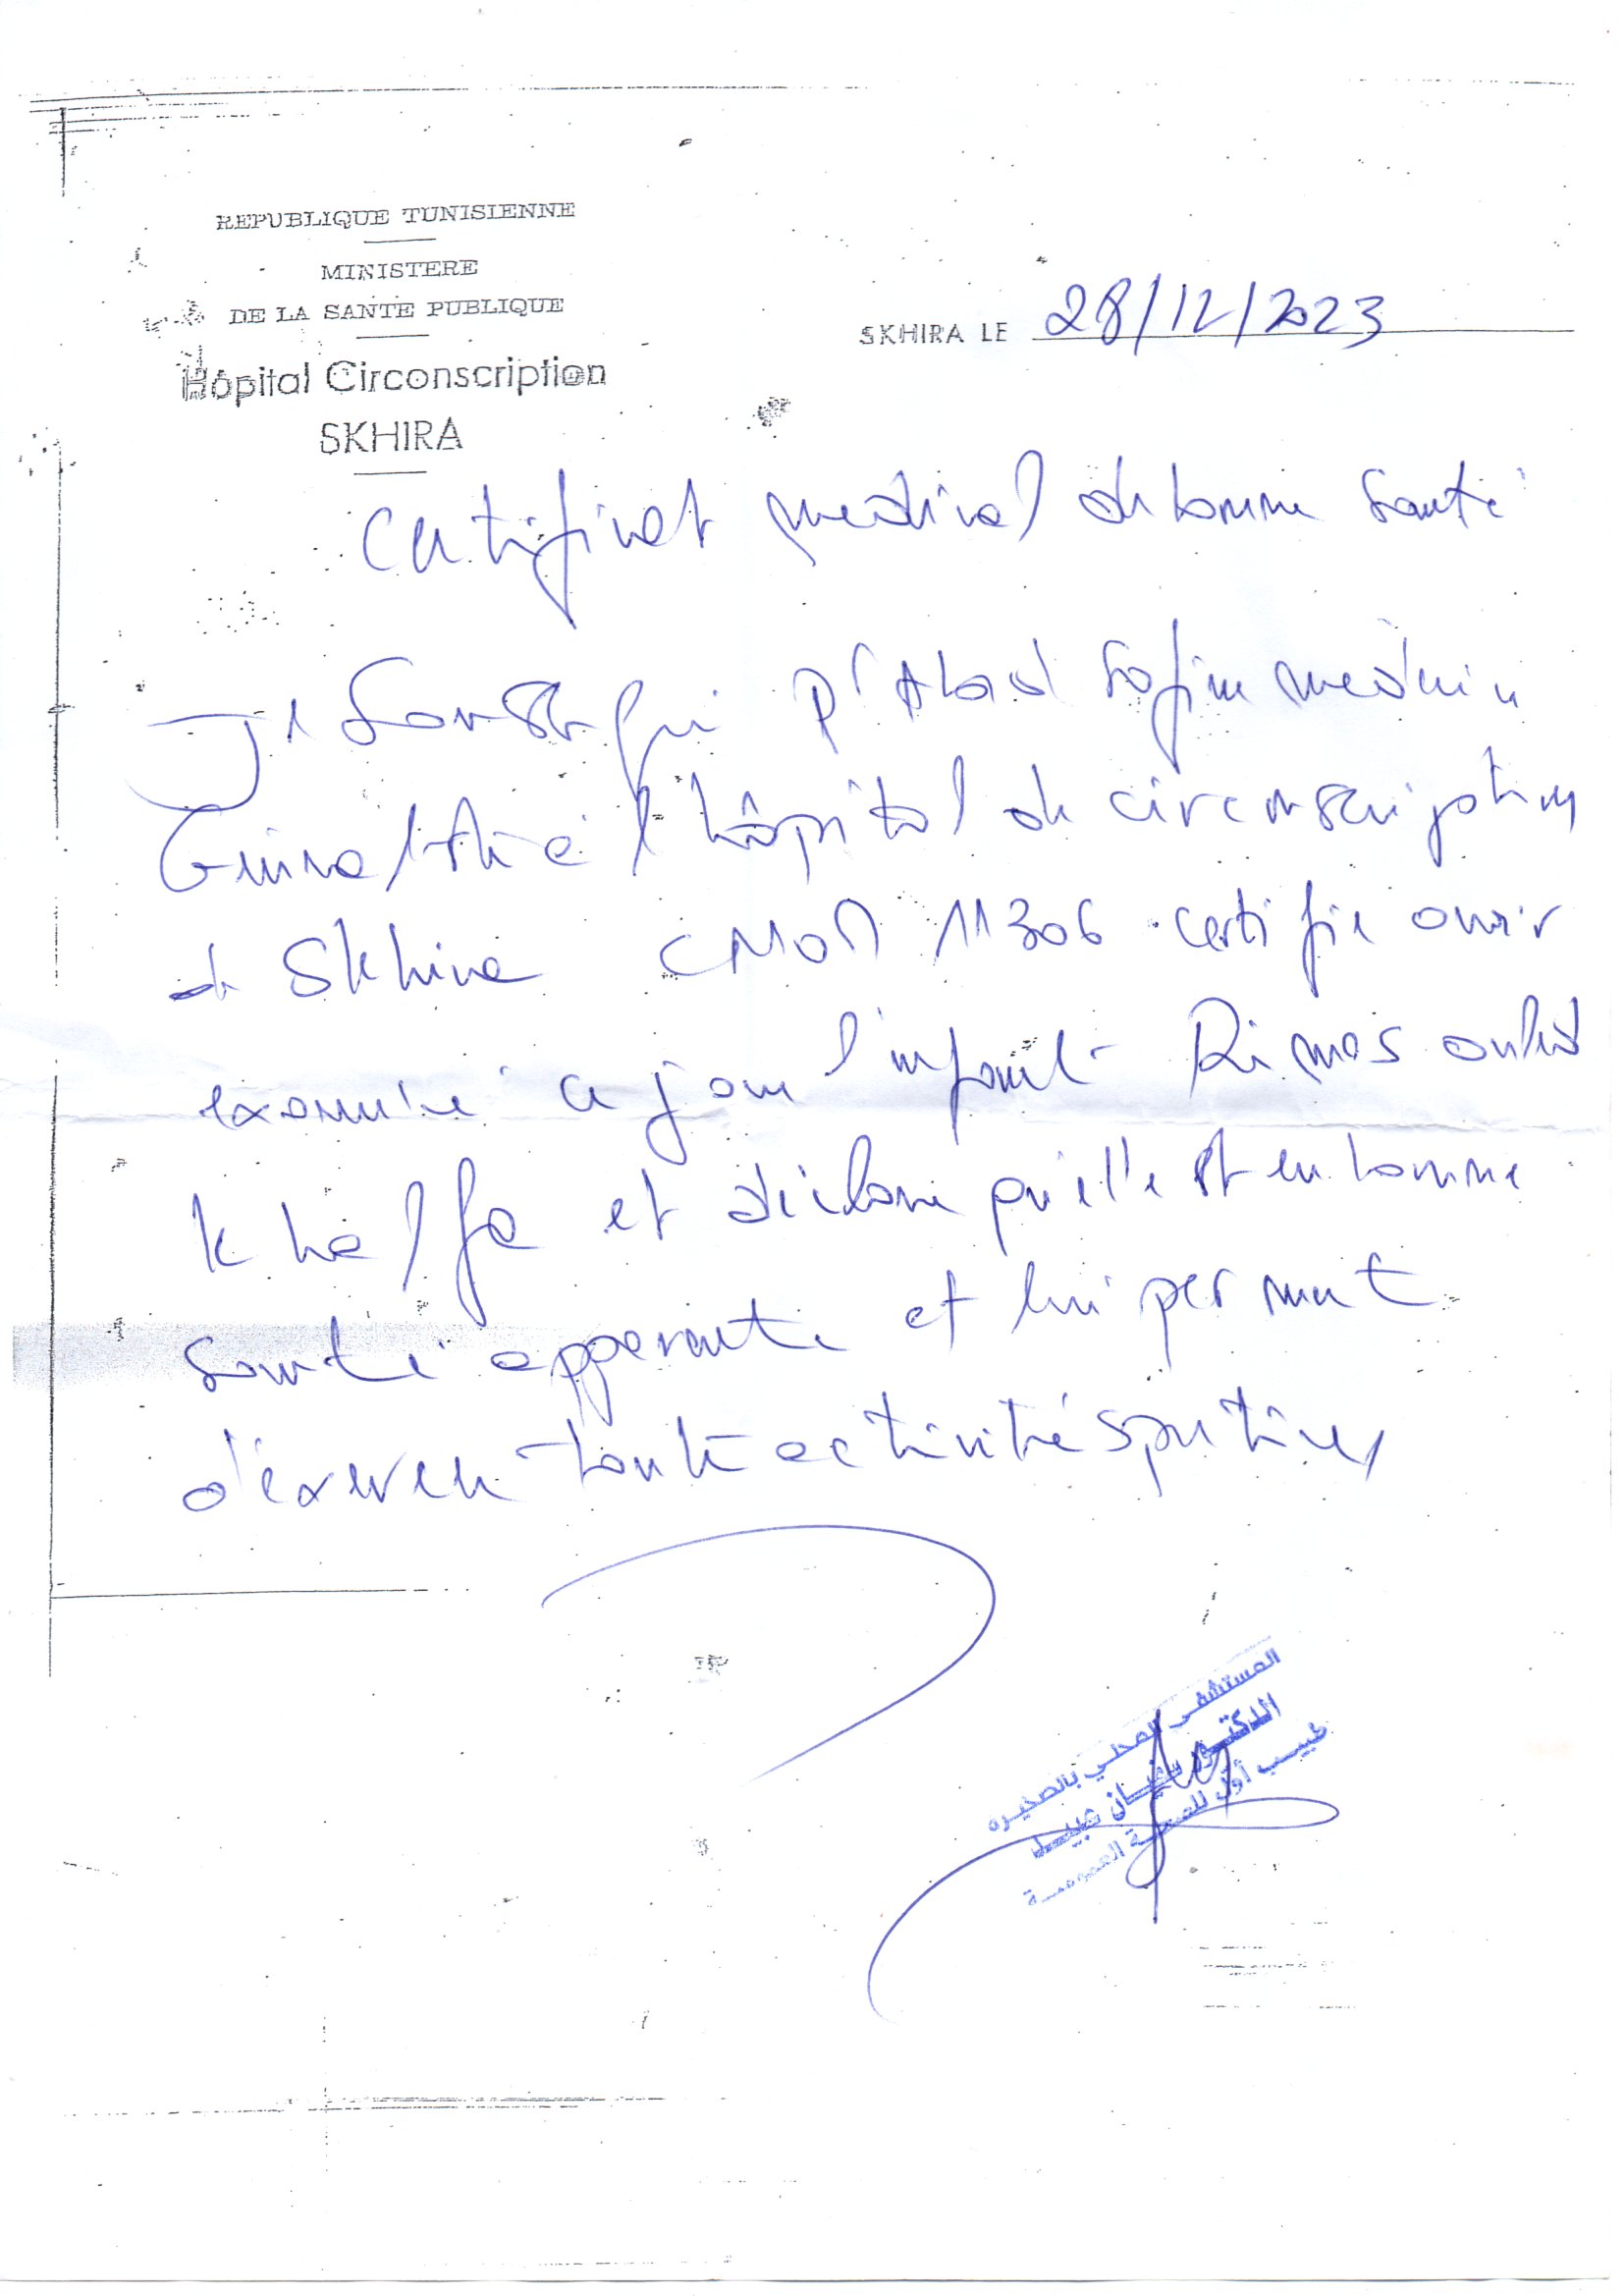 REPUBLIQUE TUNISIENNE
MINISTERE
DE LA SANTE PUBLIQUE
Hôpital Circonscription
SKHIRA
SKHIRA LE 28/12/2023
Certificat médical de bonne santé
Je soussigné Dr Abid Sofien médecin
Généraliste à l'hôpital de circonscription
de Skhira CNOM 11306 certifie avoir
examiné ce jour l'enfant Rimas ouled
Khalfa et déclare qu'elle est en bonne
santé apparente et lui permet
d'exercer toute activité sportive
المستشفى المحلي بالصخيرة
الدكتور سفيان عبيد
طبيب أول للصحة العمومية